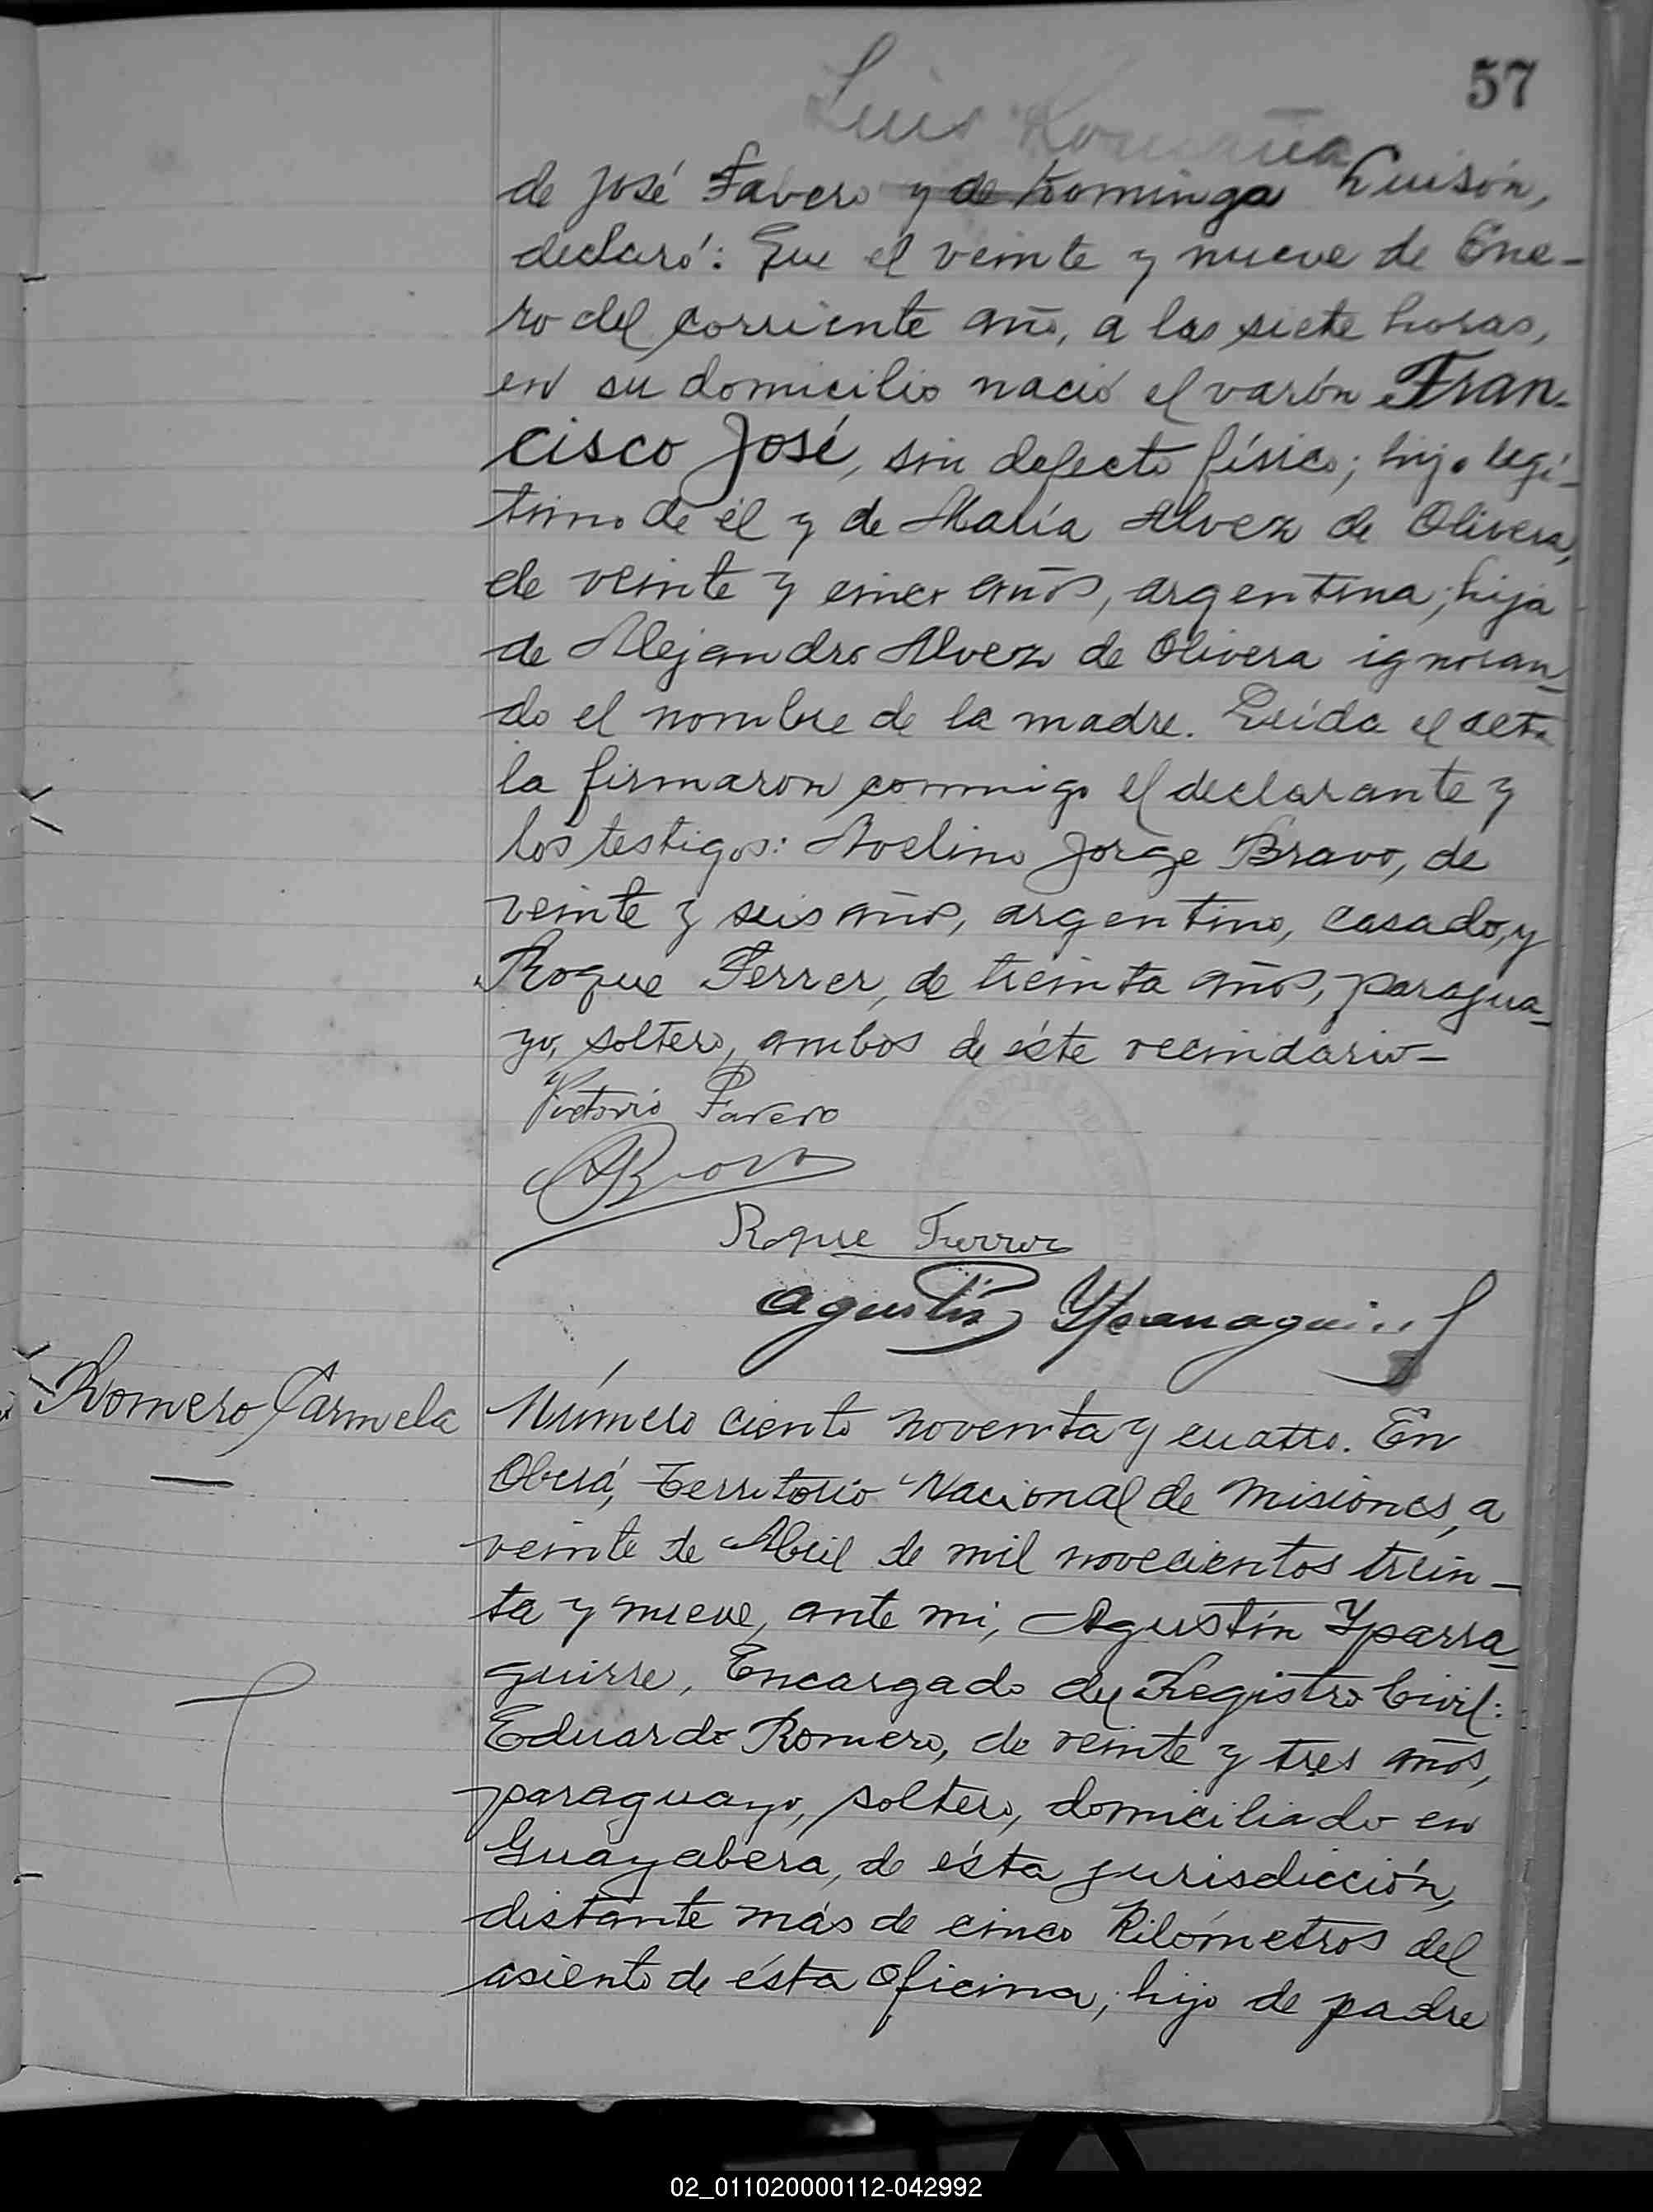 57
Luis
de José Favero y de Dominga Luisón,
declaró: Que el veinte y nueve de Ene-
ro del corriente año, a las siete horas,
en su domicilio nació el varón Fran-
cisco José, sin defecto físico; hijo legí-
timo de él y de María Alvez de Olivera,
de veinte y cinco años, argentina; hija
de Alejandro Alvez de Olivera ignoran-
do el nombre de la madre. Leída el acta
la firmaron conmigo el declarante y
los testigos: Avelino Jorge Bravo, de
veinte y seis años, argentino, casado, y
Roque Ferrer, de treinta años, paragua-
yo, soltero, ambos de éste vecindario-
Victorio Favero
ABravo
Roque Ferrer
Agustín Yparraguirre
Romero Carmela
Número ciento noventa y cuatro. En
Oberá, Territorio Nacional de Misiones, a
veinte de Abril de mil novecientos trein-
ta y nueve, ante mi, Agustín Yparra-
guirre, Encargado del Registro Civil:
Eduardo Romero, de veinte y tres años,
paraguayo, soltero, domiciliado en
Guayabera, de ésta jurisdicción,
distante más de cinco Kilómetros del
asiento de ésta Oficina; hijo de padre
02_011020000112-042992